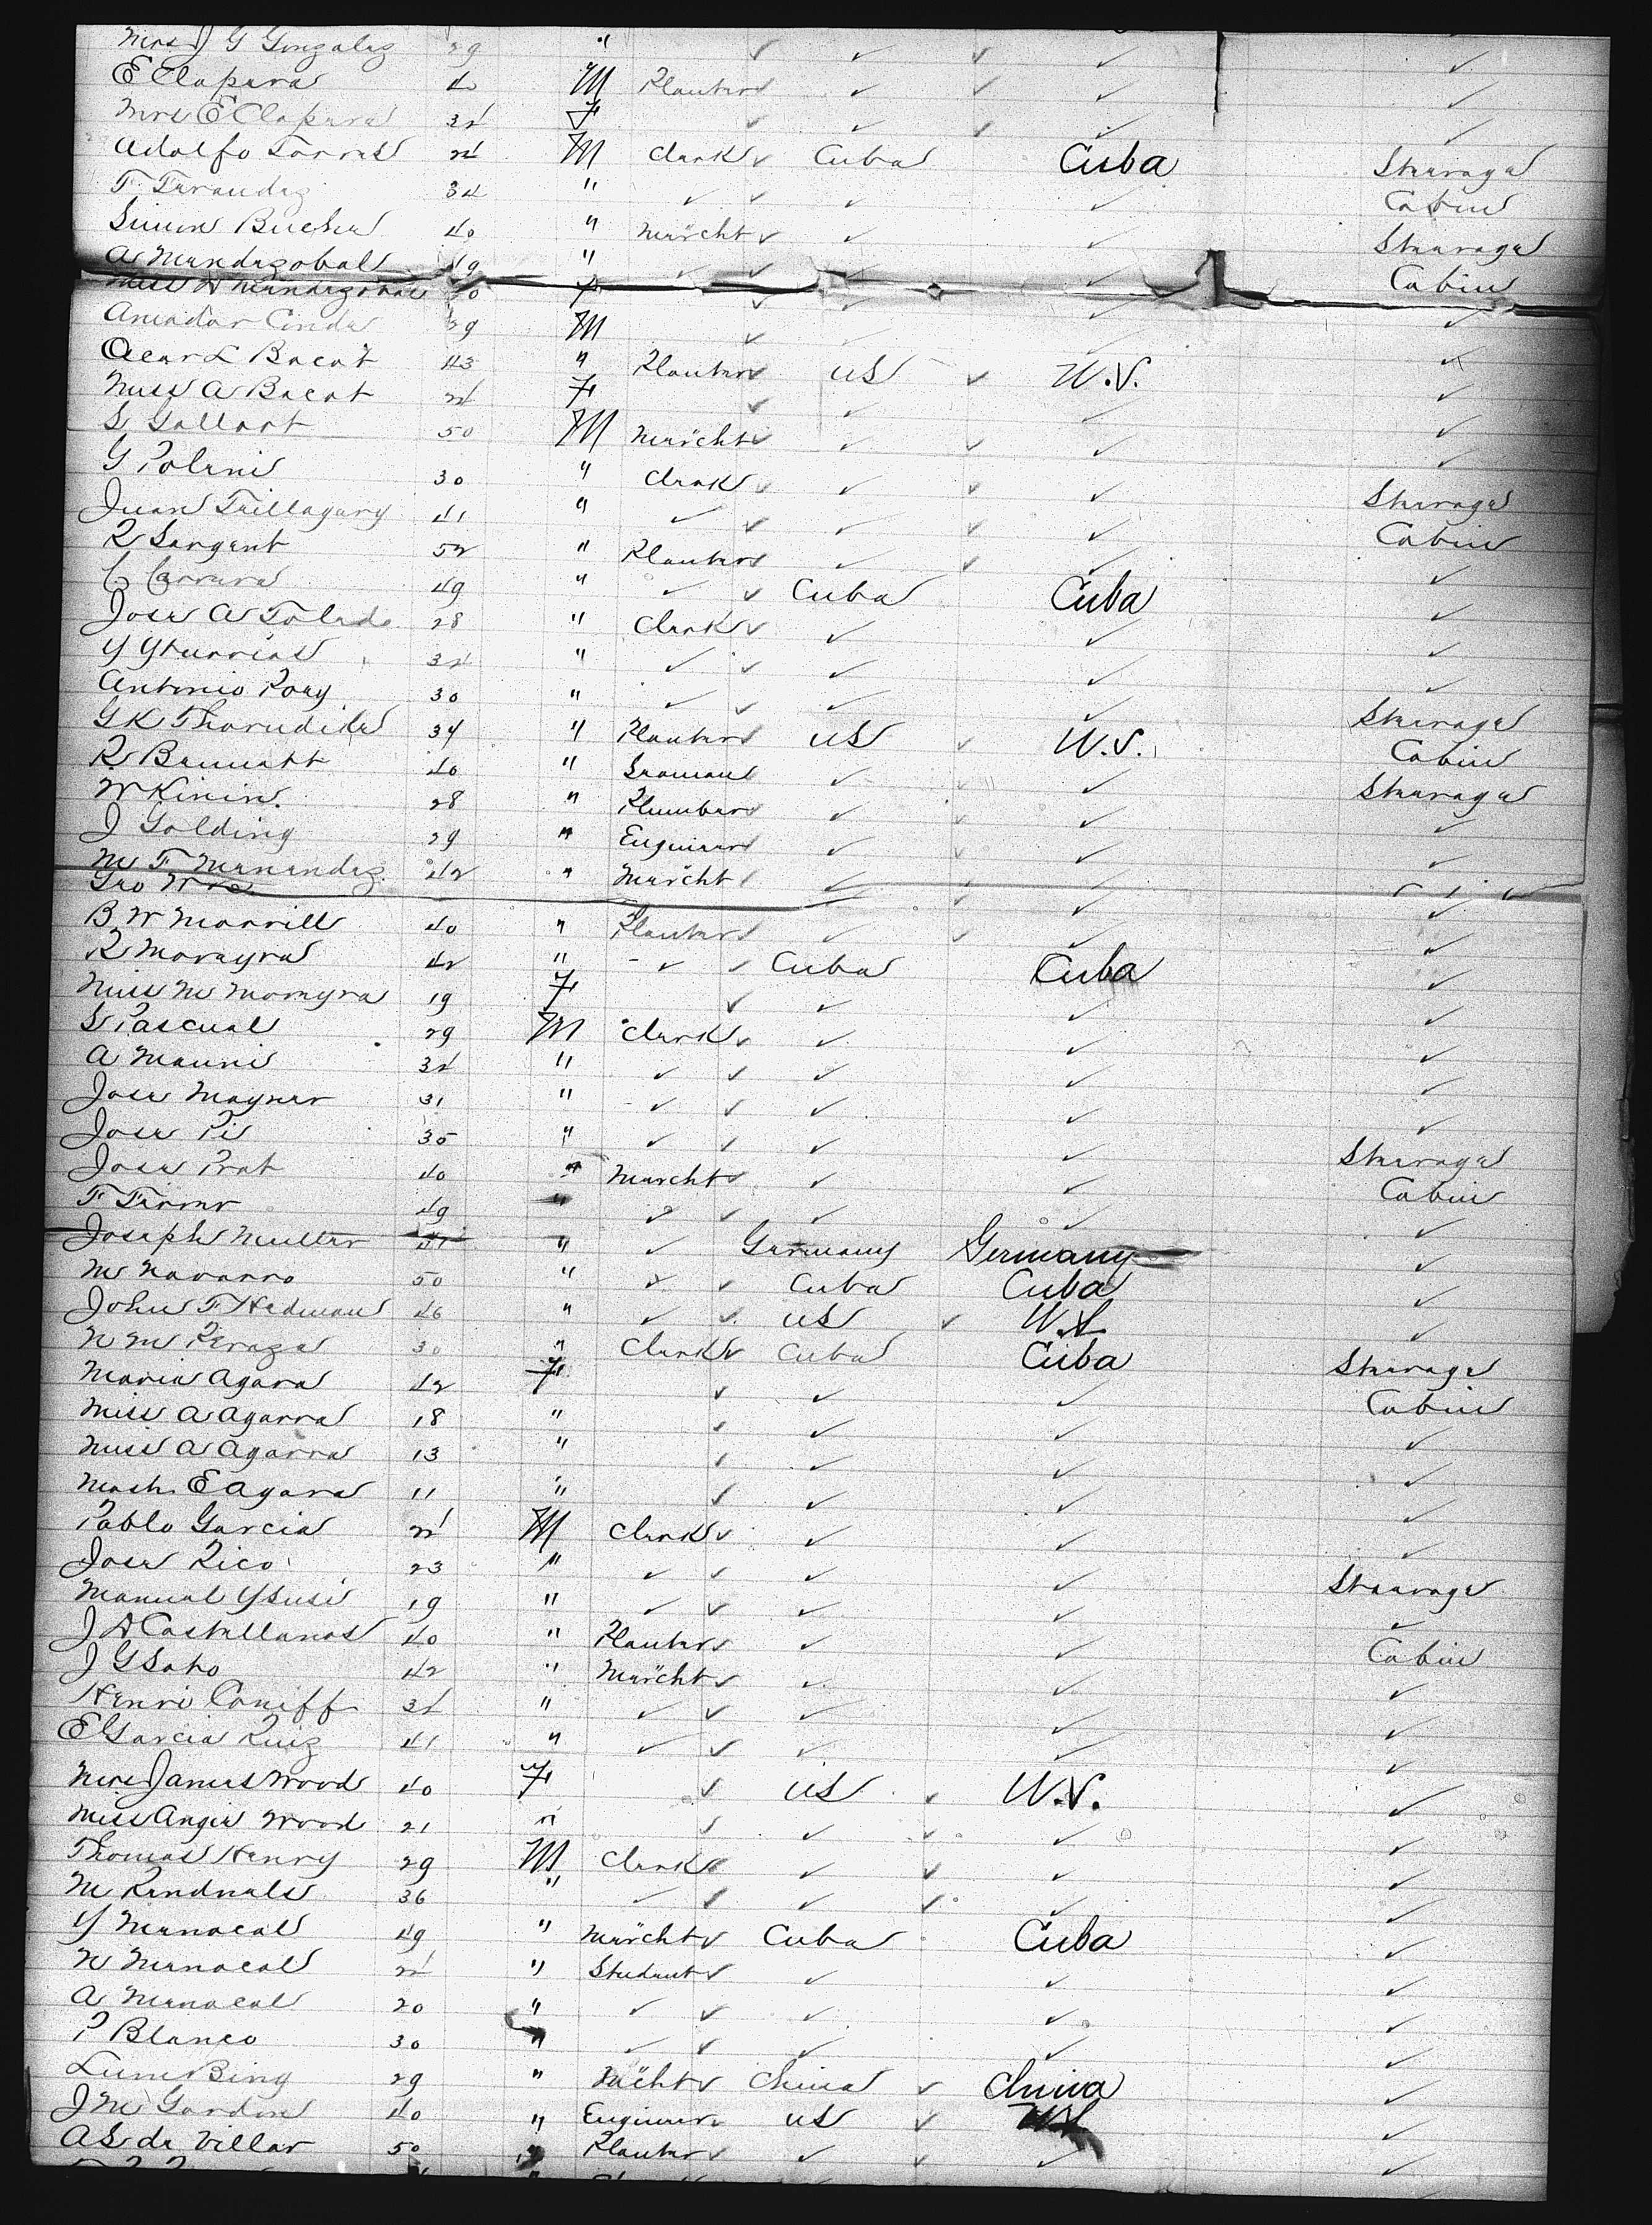 Mrs J G Gonzalez 29 " ✓ ✓ ✓ ✓ ✓
E Clapara 40 M Planter ✓ ✓ ✓ ✓ ✓
Mrs E Clapara 34 F ✓ ✓ ✓ ✓ ✓
Adolfo Torres 24 M Clerk ✓ Cuba Cuba Steerage
34 " ✓ ✓ ✓ ✓ Cabin
Simon 40 " Mercht ✓ ✓ ✓ Steerage
A Mendezobal 49 " ✓ ✓ ✓ ✓ Cabin
A Mendezobal F ✓ ✓ ✓ ✓
Amador 29 M ✓ ✓ ✓
Bacot 43 " Planter US ✓ U.S. ✓
Miss A Bacot 24 F ✓ ✓ ✓ ✓
S Gallart 50 M Mercht ✓ ✓ ✓ ✓ ✓
G Poleni 30 " Clerk ✓ ✓ ✓ ✓ Steerage
Juan 41 " ✓ ✓ ✓ ✓ ✓ Cabin
R Sargent 52 " Planter ✓ ✓ ✓ ✓
49 " ✓ ✓ Cuba Cuba ✓
Jose A Toledo 28 " Clerk ✓ ✓ ✓ ✓
Y Yturrias 34 " ✓ ✓ ✓ ✓ ✓
Antonio 30 " ✓ ✓ ✓ ✓ Steerage
G K Thorndike 34 " Planter US ✓ U.S. Cabin
R Bennett 40 " Seaman ✓ ✓ ✓ Steerage
W Kinin. 28 " Plumber ✓ ✓ ✓ ✓
J Golding 29 " Engineer ✓ ✓ ✓ ✓
M F Menendez 42 " Mercht ✓ ✓ ✓
Geo
B W Morrill 40 " Planter ✓ ✓ ✓ ✓
R Morayra 42 " ✓ ✓ Cuba Cuba ✓
Miss M Morayra 19 F ✓ ✓ ✓ ✓
S Pascual 29 M Clerk ✓ ✓ ✓ ✓
A Mauni 34 " ✓ ✓ ✓ ✓ ✓
Jose Mayner 31 " ✓ ✓ ✓ ✓ ✓
Jose Pi 35 " ✓ ✓ ✓ ✓ Steerage
Jose Prat 40 " Mercht ✓ ✓ ✓ Cabin
F Ferrer 49 " ✓ ✓ ✓ ✓ ✓
Joseph Muller 41 " ✓ Germany Germany ✓
M Navarro 50 " ✓ ✓ Cuba Cuba ✓
John F Hedman 46 " ✓ ✓ US ✓ U.S. ✓
N M Peraza 30 " Clerk ✓ Cuba Cuba Steerage
Maria Agara 42 F ✓ ✓ ✓ Cabin
Miss A Agarra 18 " ✓ ✓ ✓ ✓
Miss A Agarra 13 " ✓ ✓ ✓ ✓
Mast. E Agara 11 " ✓ ✓ ✓ ✓
Pablo Garcia 24 M Clerk ✓ ✓ ✓ ✓
Jose Rico 23 " ✓ ✓ ✓ ✓ Steerage
Manuel Ysusi 19 " ✓ ✓ ✓ ✓ ✓
J A Castellanos 40 " Planter ✓ ✓ ✓ Cabin
J G Soto 42 " Mercht ✓ ✓ ✓ ✓
Henri Caniff 34 " ✓ ✓ ✓ ✓ ✓
E Garcia Ruiz 41 " ✓ ✓ ✓ ✓ ✓
Mrs James Wood 40 F ✓ US ✓ U.S. ✓
Miss Angie Wood 21 " ✓ ✓ ✓ ✓ ✓
Thomas Henry 29 M Clerk ✓ ✓ ✓ ✓
M 36 " ✓ ✓ ✓ ✓ ✓ ✓
Y Menocal 49 " Mercht ✓ Cuba Cuba ✓
N Menocal 24 " Student ✓ ✓ ✓ ✓
A Menocal 20 " ✓ ✓ ✓ ✓ ✓
P Blanco 30 " ✓ ✓ ✓ ✓ ✓
Lum Bing 29 " Mercht ✓ China ✓ China ✓
J M Gordon 40 " Engineer US ✓ ✓
A S de Villar 50 " Planter ✓ ✓ ✓ ✓